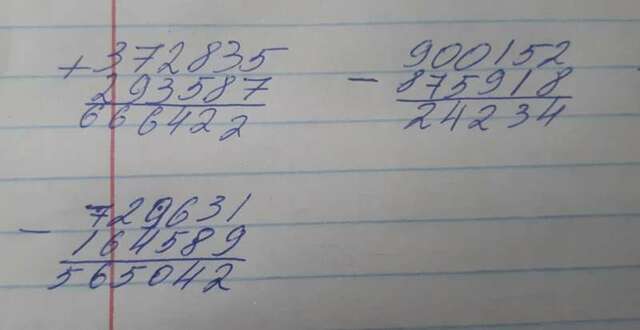 +372835
293587
666422
900152
- 875918
24234
729631
- 164589
565042